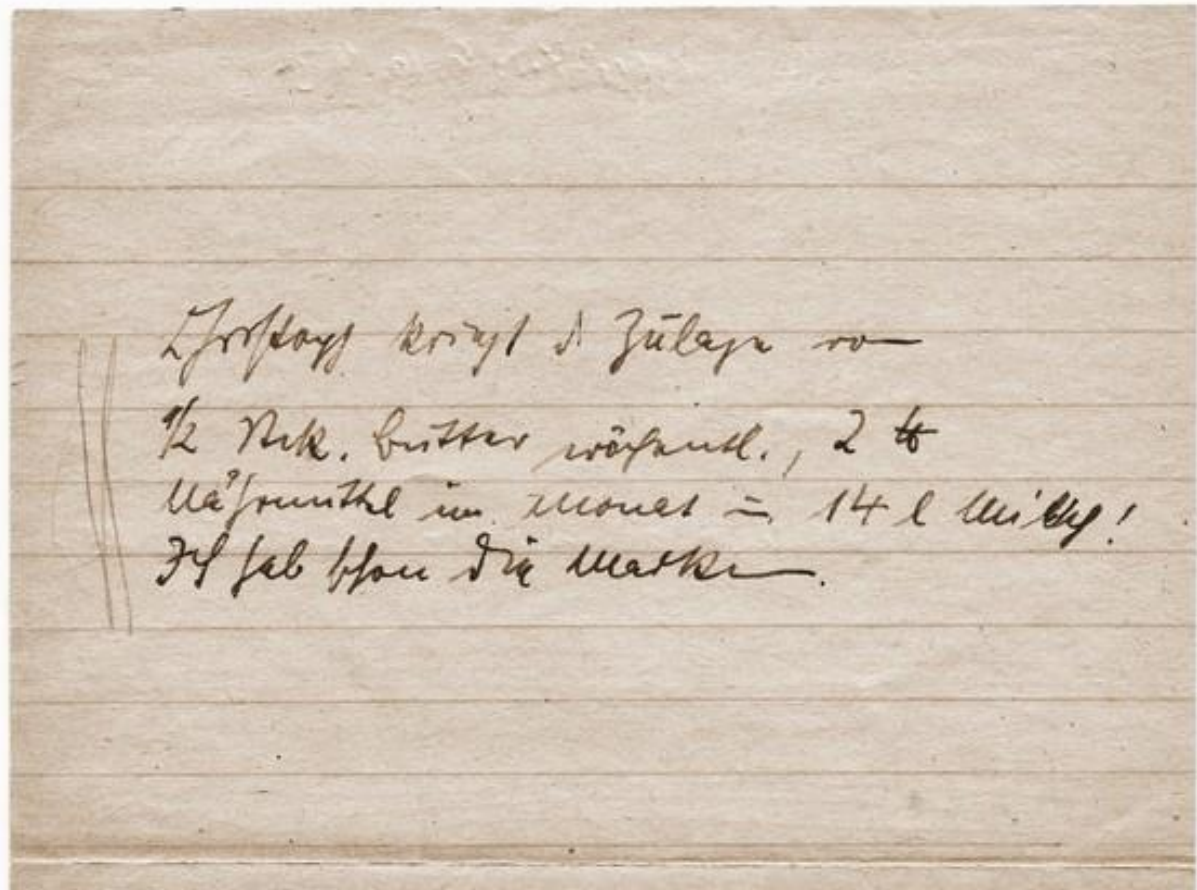 Christoph kriegt d Zulage von
1/2 Stck. Butter wöchentl., 2 ℔
Nährmittel im Monat u. 14 l Milch!
Ich hab schon die Marken.